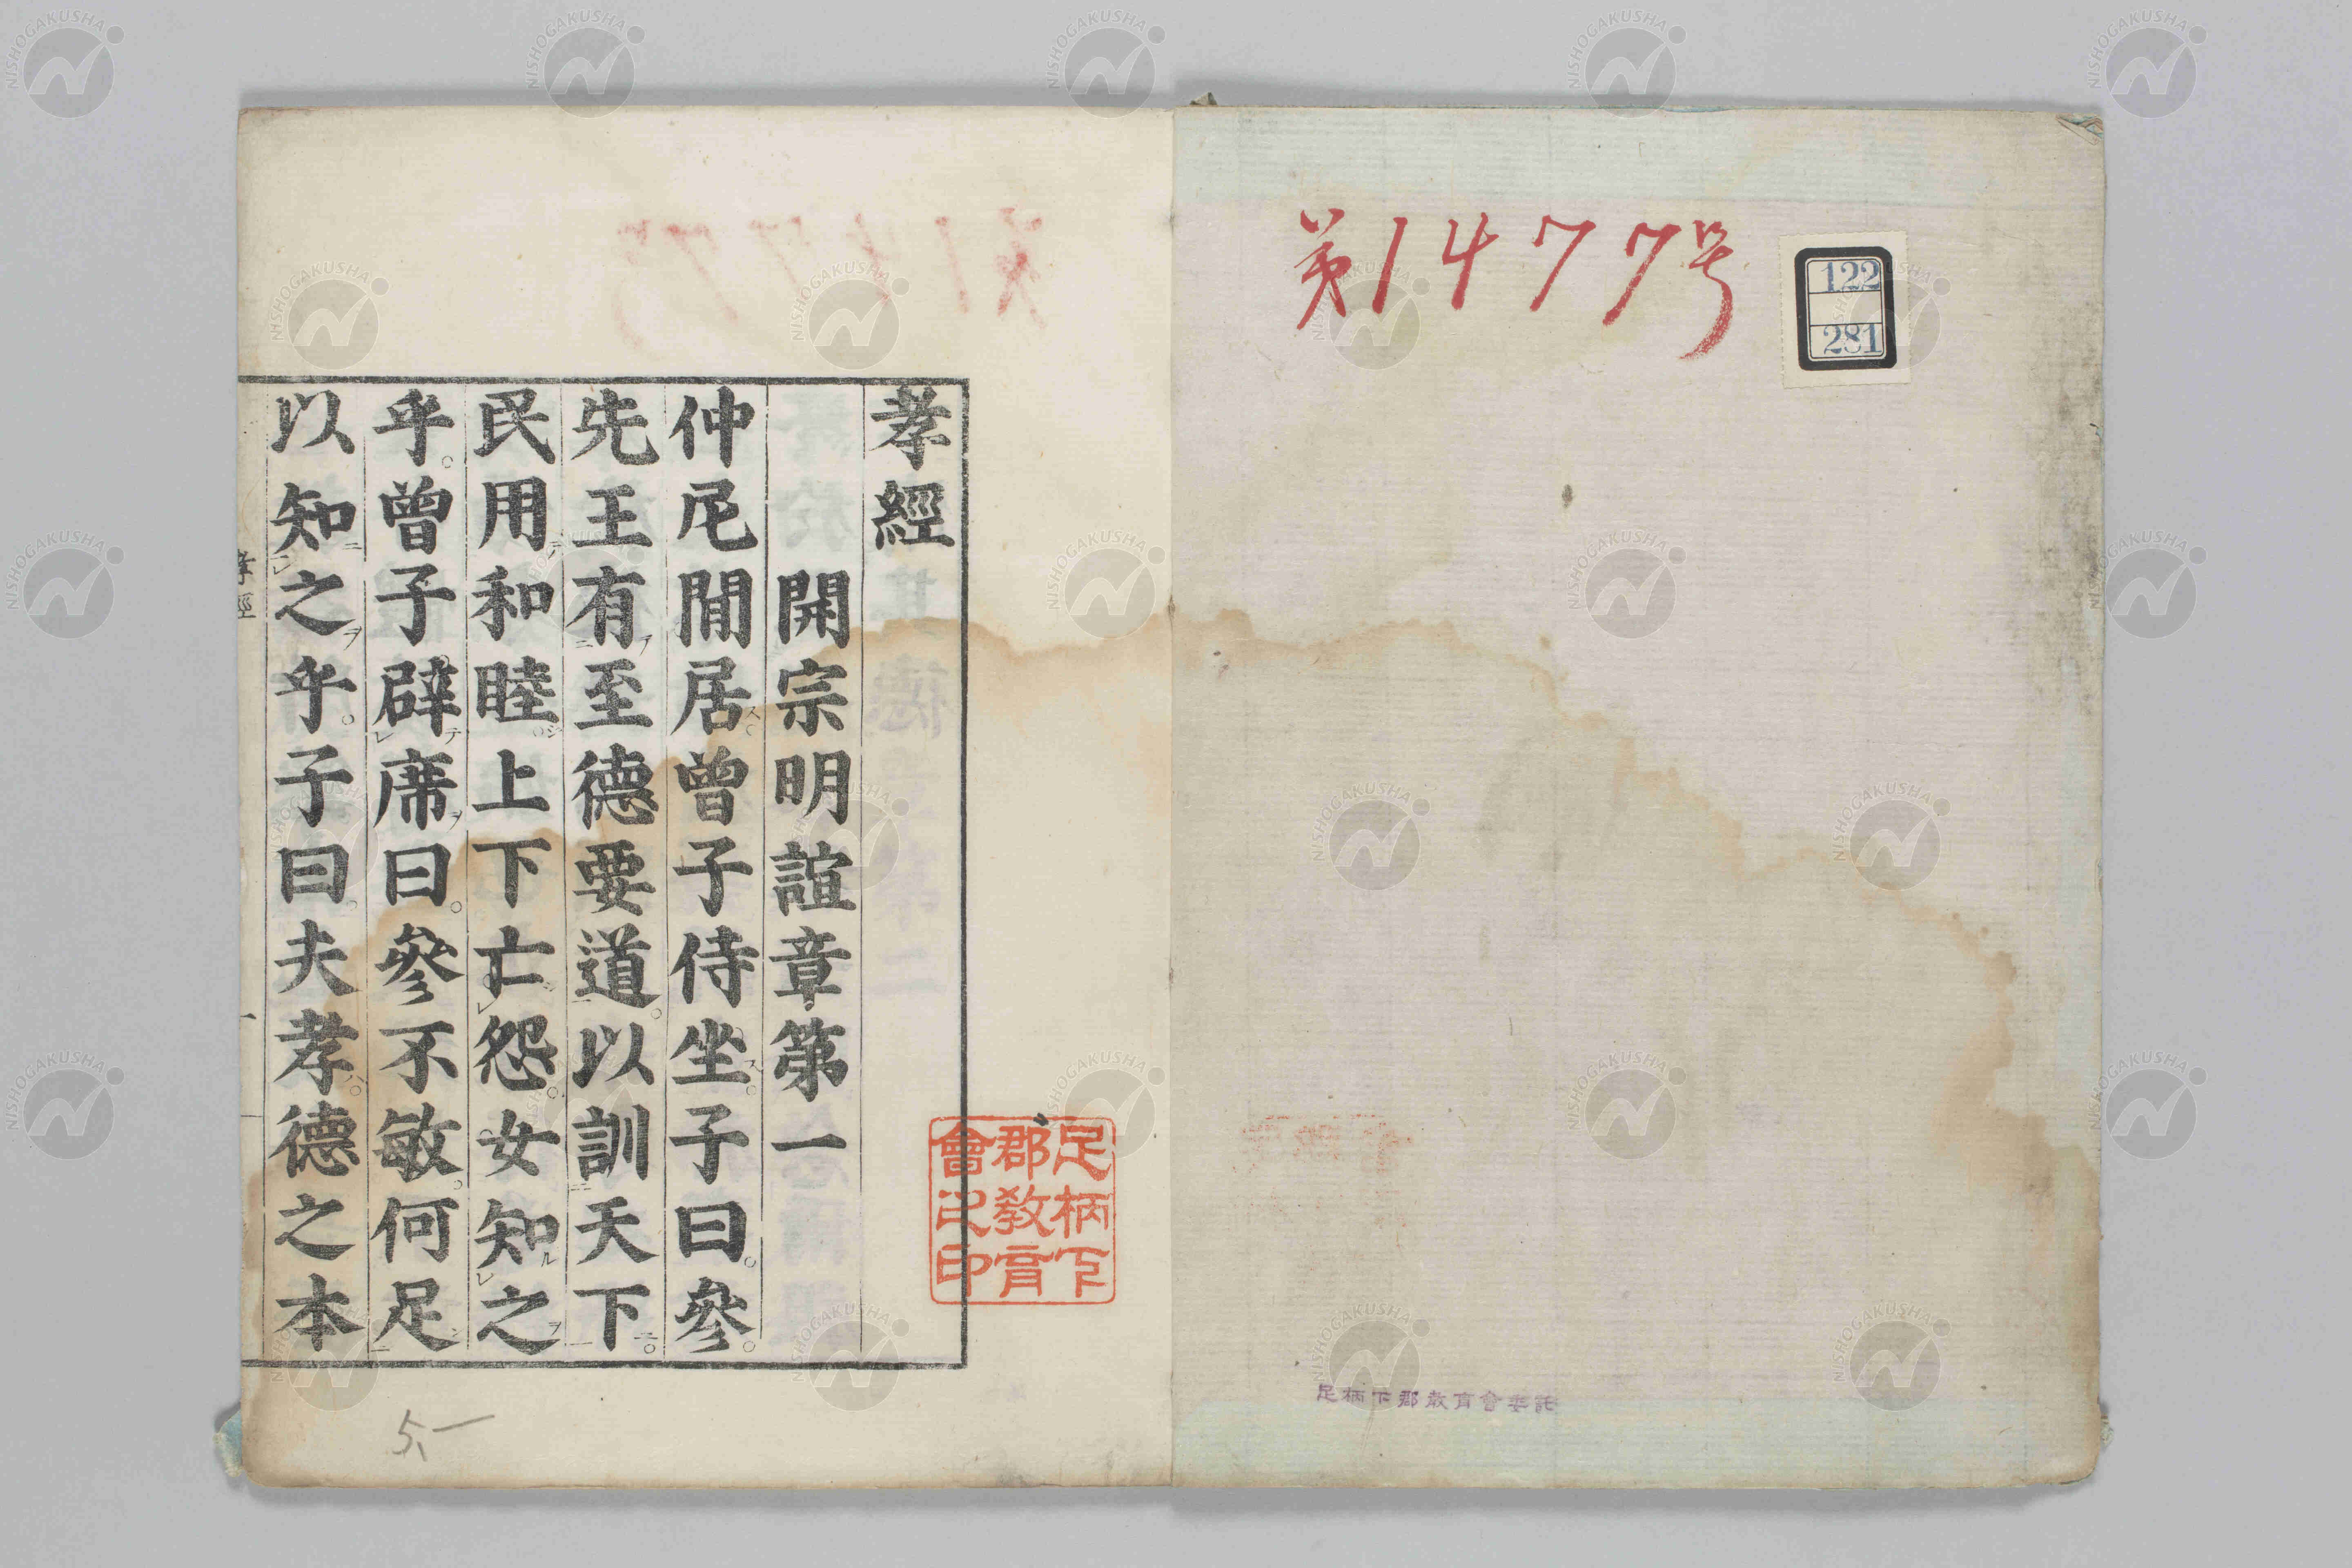 第1477号
122
281
足柄下郡教育會委託
孝經
開宗明誼章第一
仲尼閒居ス。曾子侍坐ス。子曰。參。
先王有二至德要道一。以訓二天下一。
民用テ和睦シ。上下亡レ怨。女知ルレ之ヲ
乎。曾子辟レ席ヲ曰。參不敏。何足シ二
以知ルニレ之ヲ乎。子曰。夫孝ハ。德之本
孝經
一
足柄下
郡教育
會之印
5、一
NISHOGAKUSHA